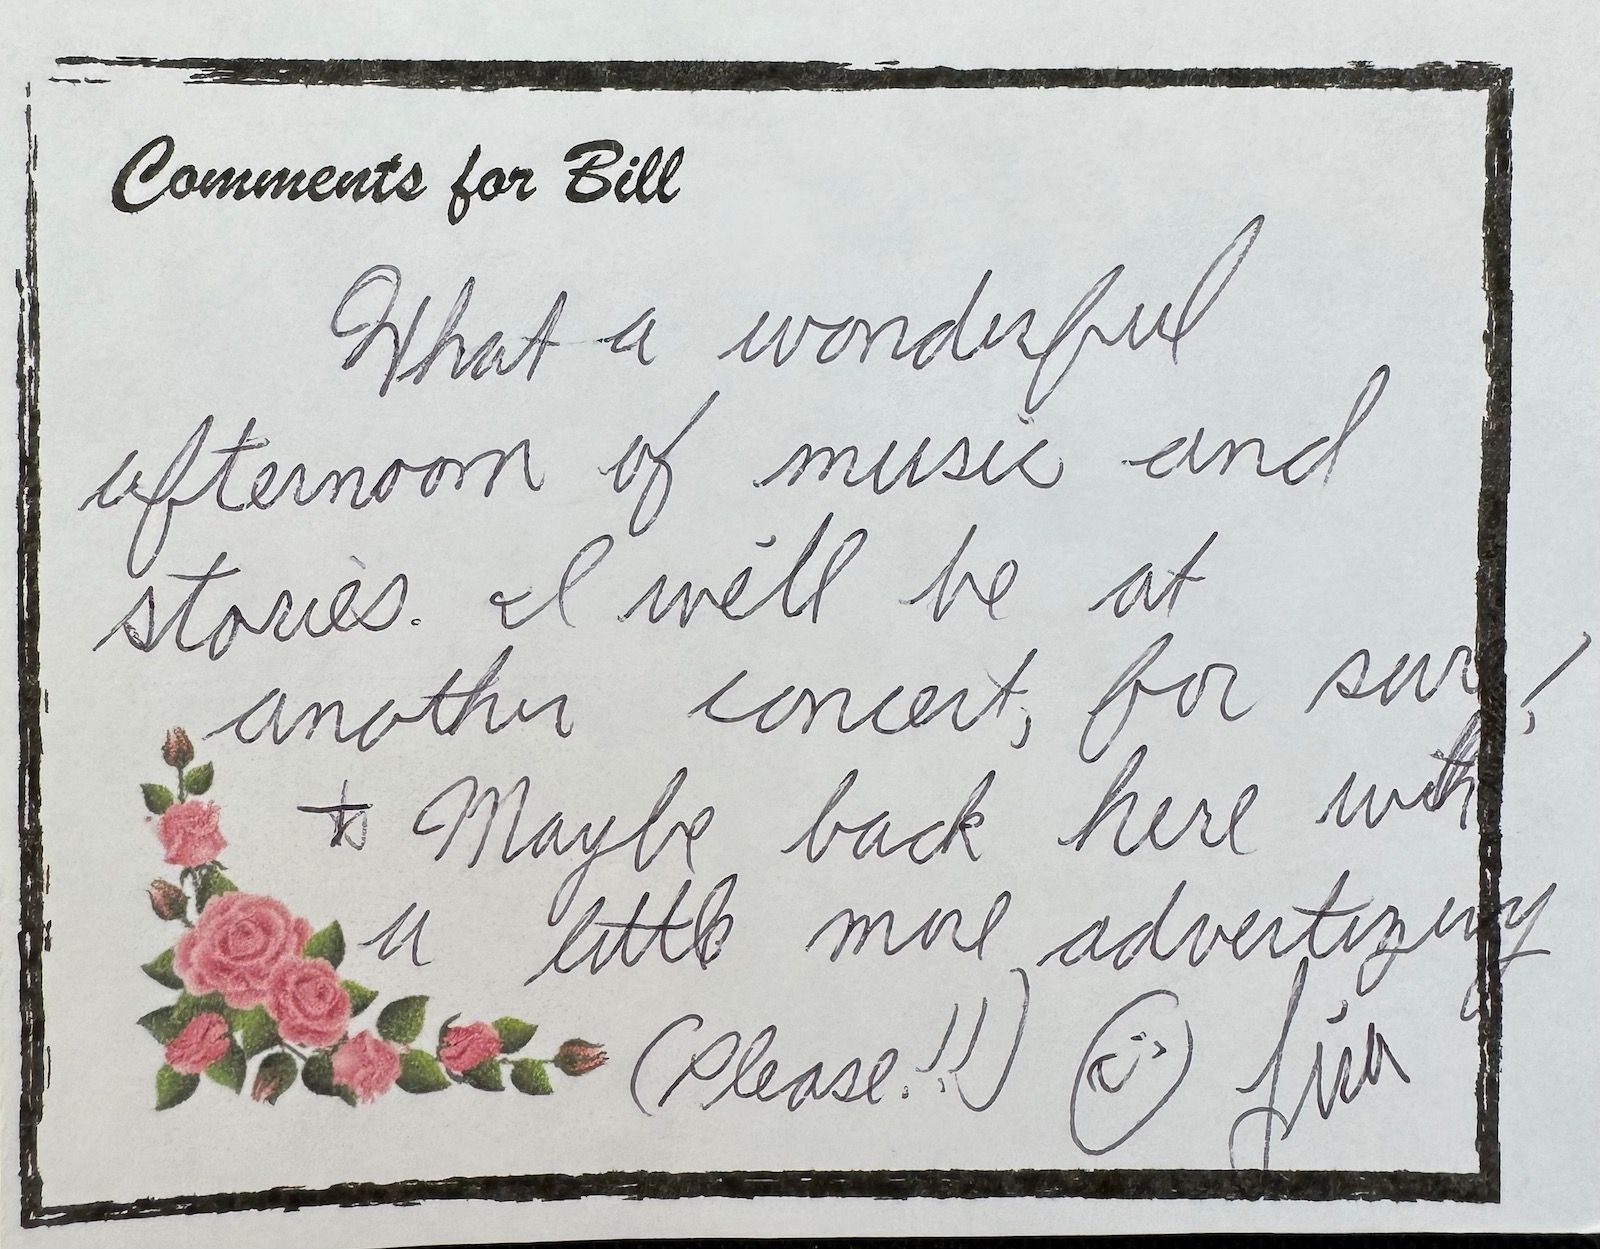 Comments for Bill
What a wonderful
afternoon of music and
stories. I will be at
another concert, for sure!
Maybe back here with
a little more advertizing
(Please!!!)